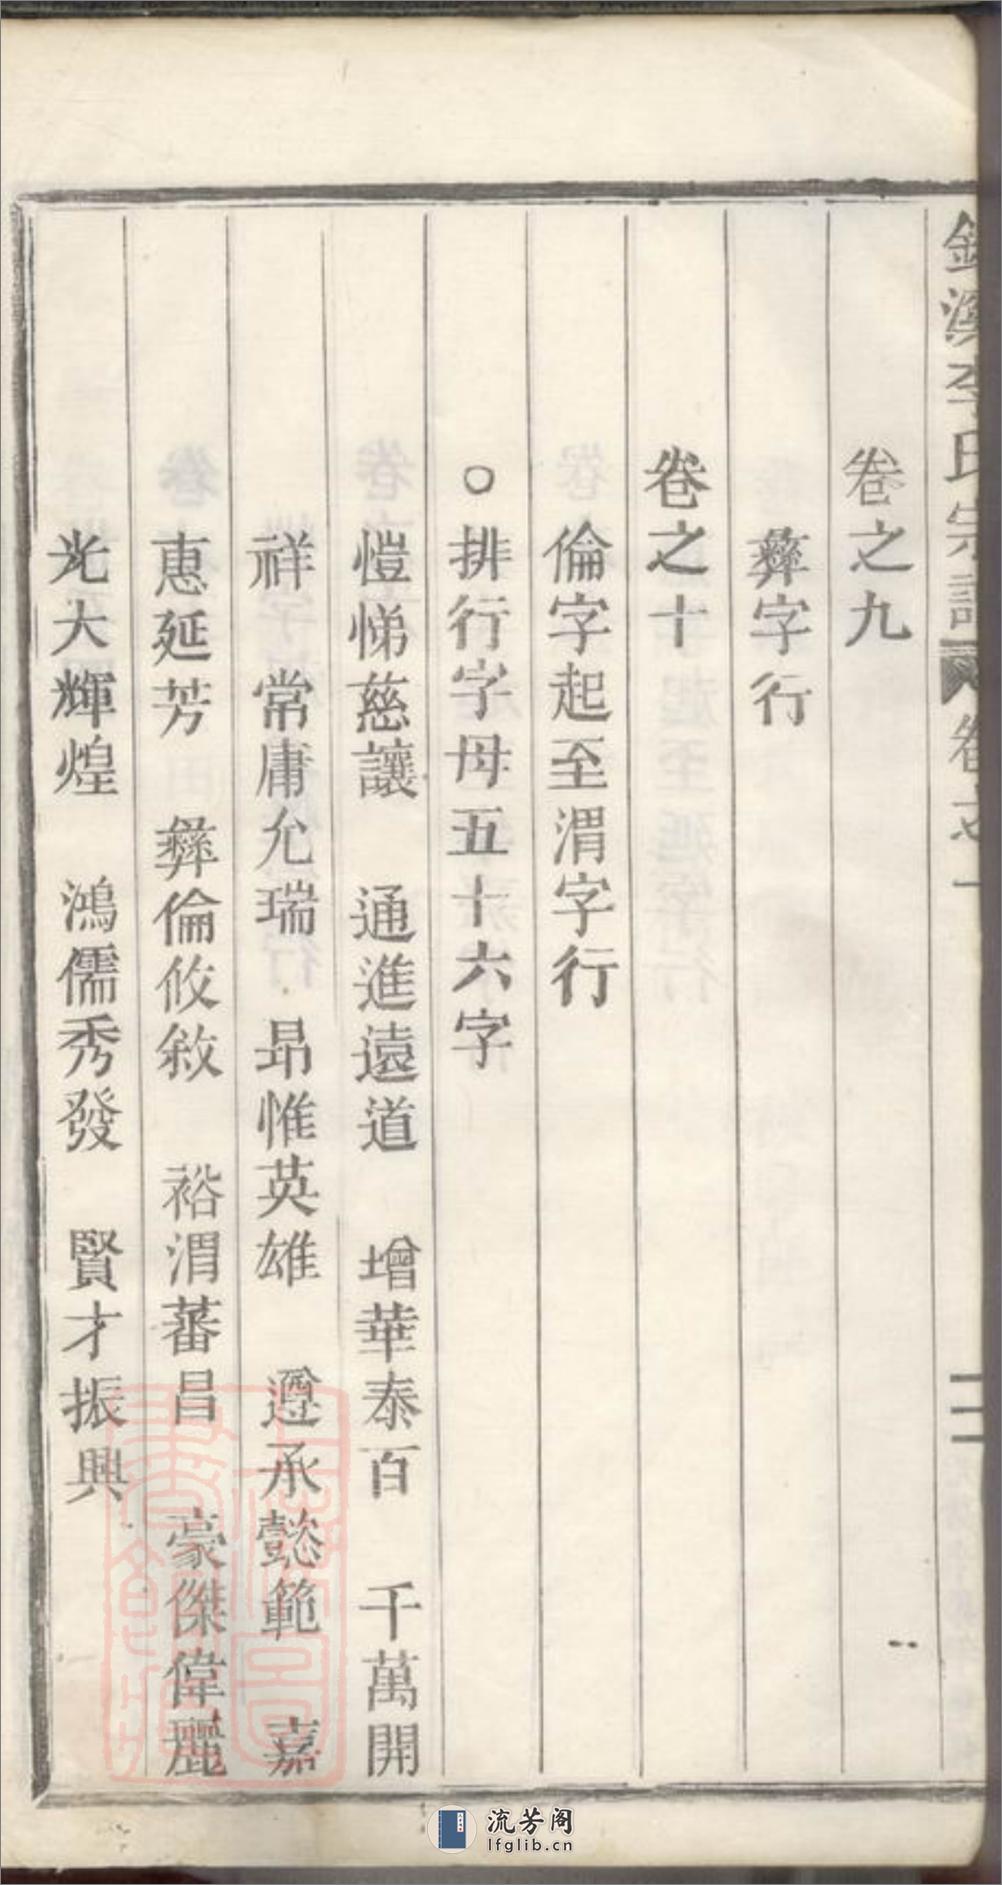 李氏宗譜 卷之一 二
卷之九
彝字行
卷之十
倫字起至渭字行
○排行字母五十六字
愷悌慈讓 通進遠道 增華泰百 千萬開
祥 常庸允瑞 昻惟英雄 遵承懿範 嘉
惠延芳 彝倫攸敘 裕渭蕃昌 豪傑偉麗
光大輝煌 鴻儒秀發 賢才振興
流芳阁
lfglib.cn